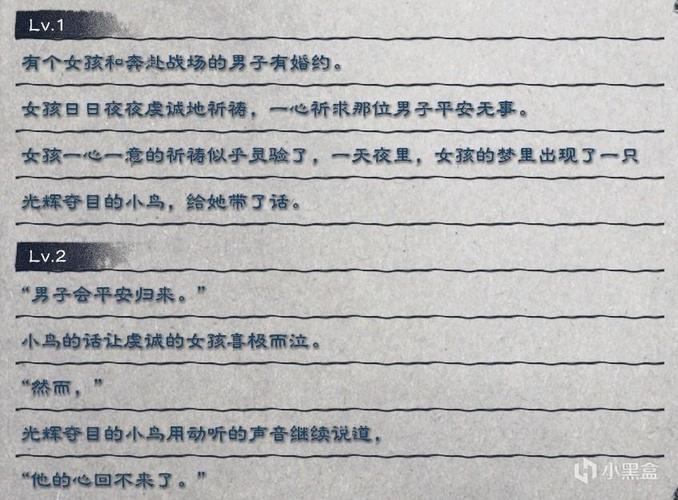 Lv.1
有个女孩和奔赴战场的男子有婚约。
女孩日日夜夜虔诚地祈祷，一心祈求那位男子平安无事。
女孩一心一意的祈祷似乎灵验了，一天夜里，女孩的梦里出现了一只
光辉夺目的小鸟，给她带了话。
Lv.2
“男子会平安归来。”
小鸟的话让虔诚的女孩喜极而泣。
“然而，”
光辉夺目的小鸟用动听的声音继续说道，
“他的心回不来了。”
小黑盒